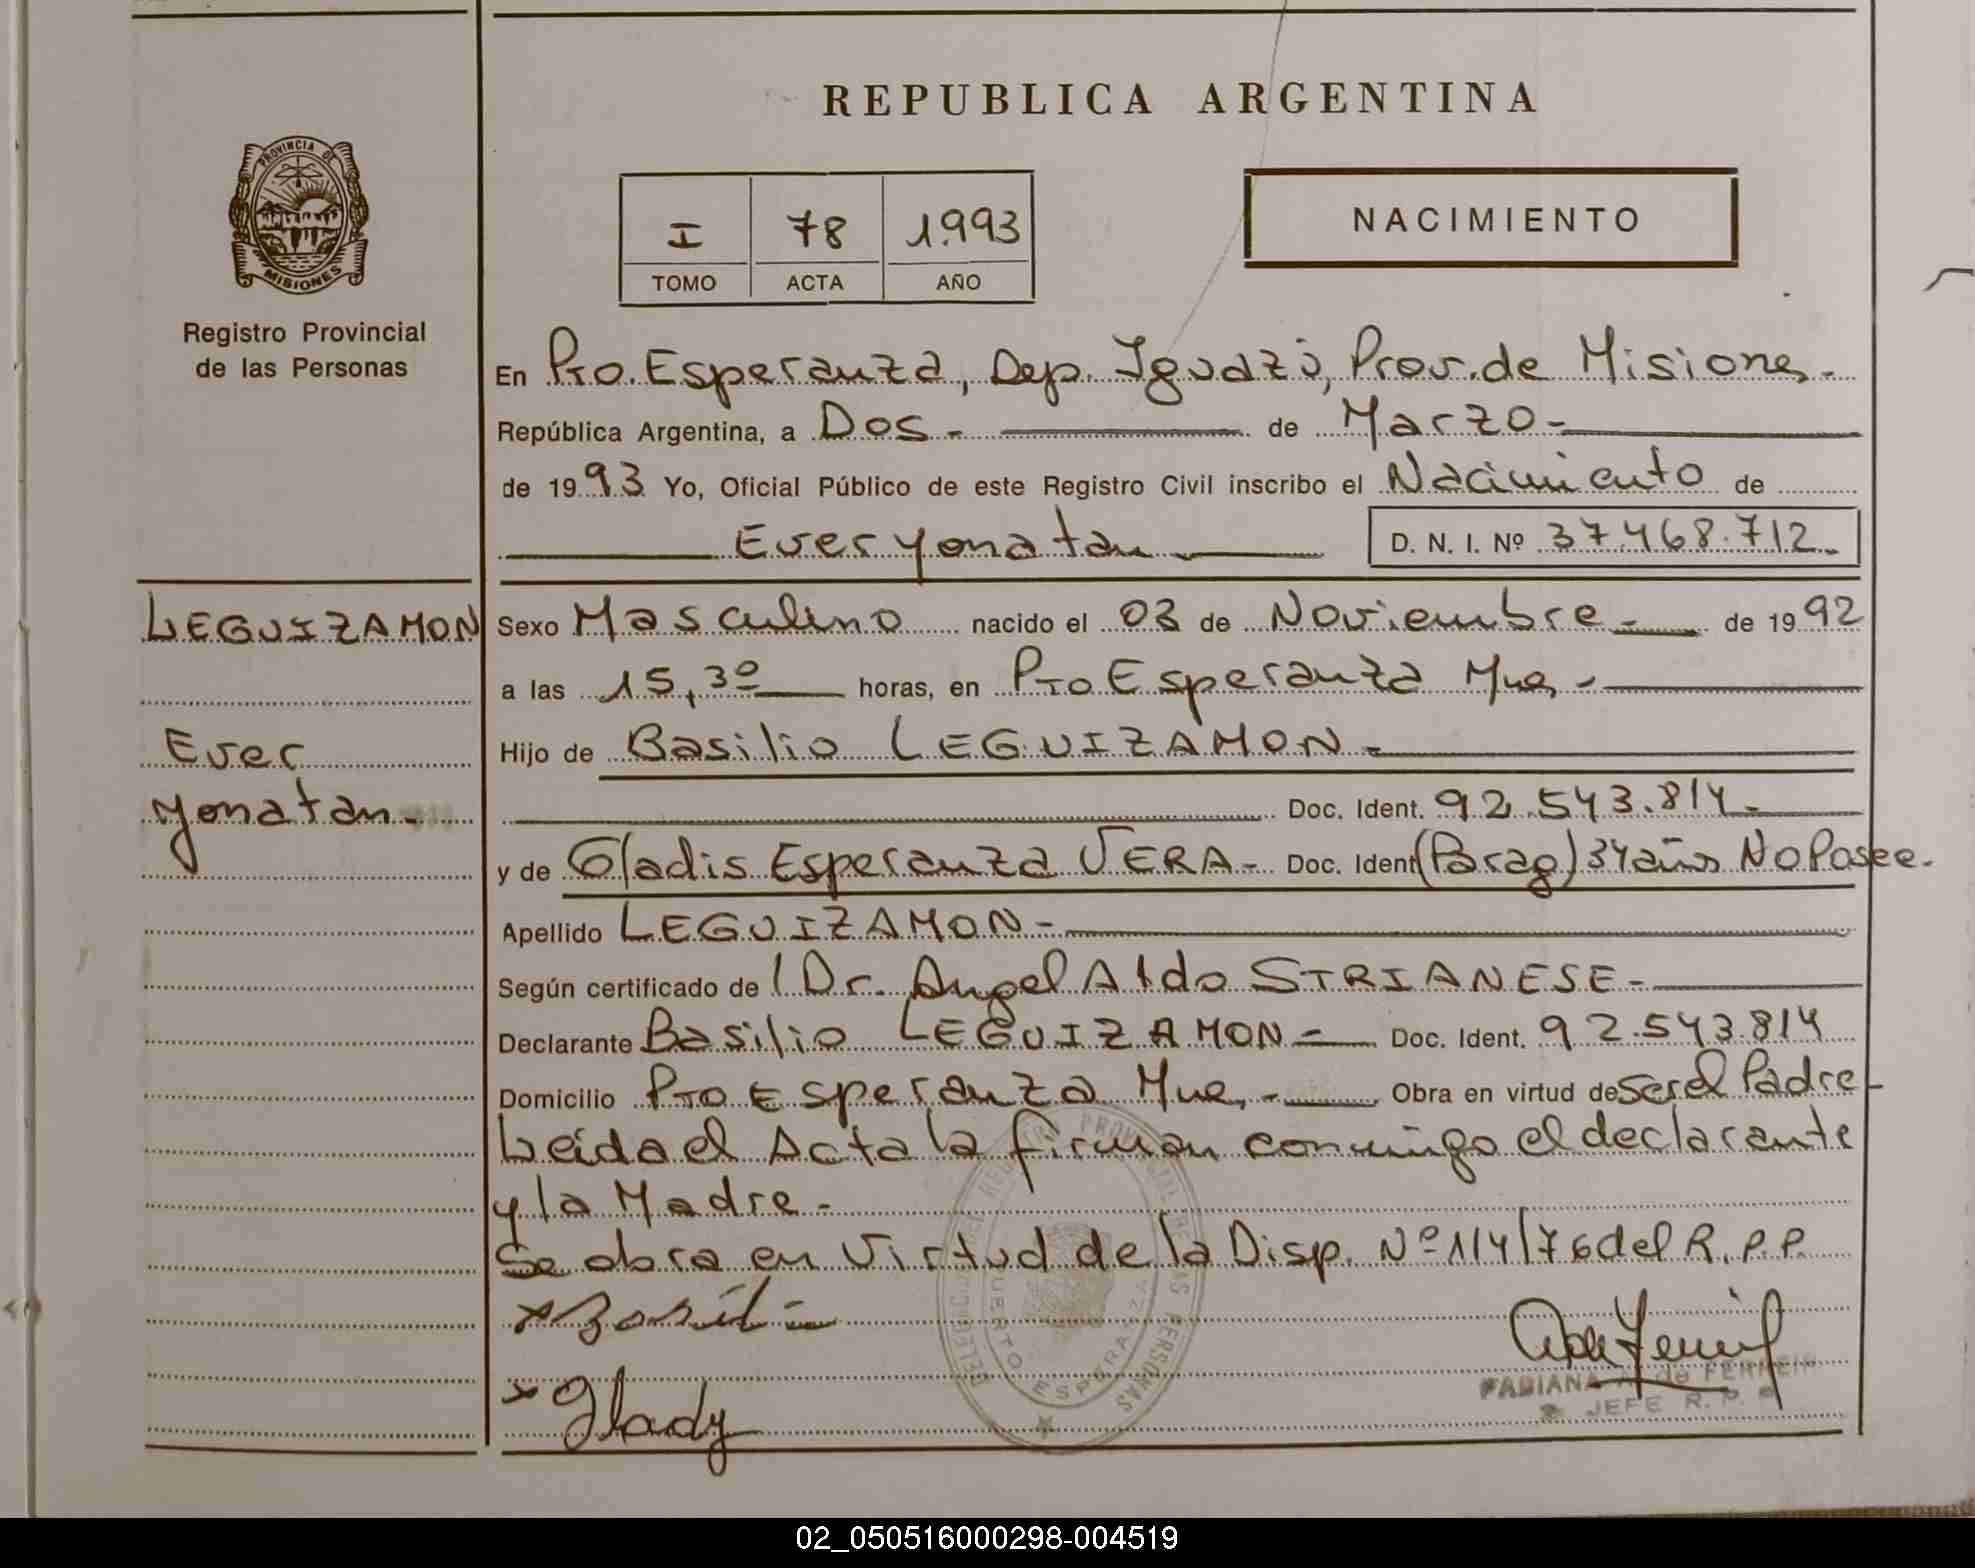 REPUBLICA ARGENTINA
PROVINCIA DE MISIONES
Registro Provincial
de las Personas
I 78 1993
TOMO ACTA AÑO
NACIMIENTO
En Pto. Esperanza, Dep. Iguazú, Prov. de Misiones.-
República Argentina, a Dos.- de Marzo.-
de 1993 Yo, Oficial Público de este Registro Civil inscribo el Nacimiento de
Ever yonatan D. N. I. Nº 37.468.712.-
LEGUIZAMON
Ever
yonatan.-
Sexo Masculino nacido el 03 de Noviembre.- de 1992
a las 15,30 horas, en Pto Esperanza Mnes.-
Hijo de Basilio LEGUIZAMON.-
Doc. Ident. 92.543.814.-
y de Gladis Esperanza VERA.- Doc. Ident (Parag) 34 años No Posee.
Apellido LEGUIZAMON.-
Según certificado de l Dr. Angel Aldo STRIANESE.-
Declarante Basilio LEGUIZAMON.- Doc. Ident. 92.543.814
Domicilio Pto Esperanza Mnes.- Obra en virtud de Ser el Padre-
Leida el Acta la firman conmigo el declarante
y la Madre.-
Se obra en Virtud de la Disp. Nº 114/76 del R.P.P.
x Basilio
x Glady
REGISTRO PROVINCIAL DE LAS PERSONAS
PUERTO ESPERANZA
FABIANA de FERREIR
JEFE R. P.
02_050516000298-004519